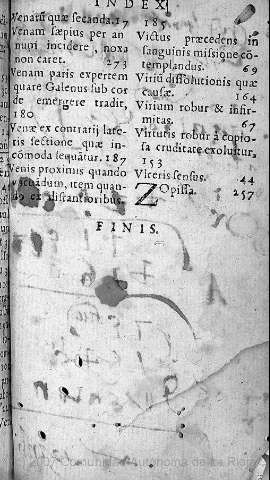 INDEX
Venarũ quæ secanda. 17
Venam sæpius per an
num incidere, noxa
non caret. 273
Venam paris expertem
quare Galenus sub cor
de emergere tradit,
180
Venæ ex contrarij late-
ris sectione quæ in-
cõmoda sequãtur. 187
Venis proximis quando
utẽdum, item quan-
do ex distantioribus.
185
Victus præcedens in
sanguinis missione cõ-
templandus. 69
Viriũ dissolutionis quæ
causæ. 164
Virium robur & infir-
mitas. 67
Virtutis robur à copio-
sa cruditate exoluitur.
153
Vlceris sensus. 44
ZOpissa. 257
FINIS.
© 2007 Comunidad Autónoma de La Rioja